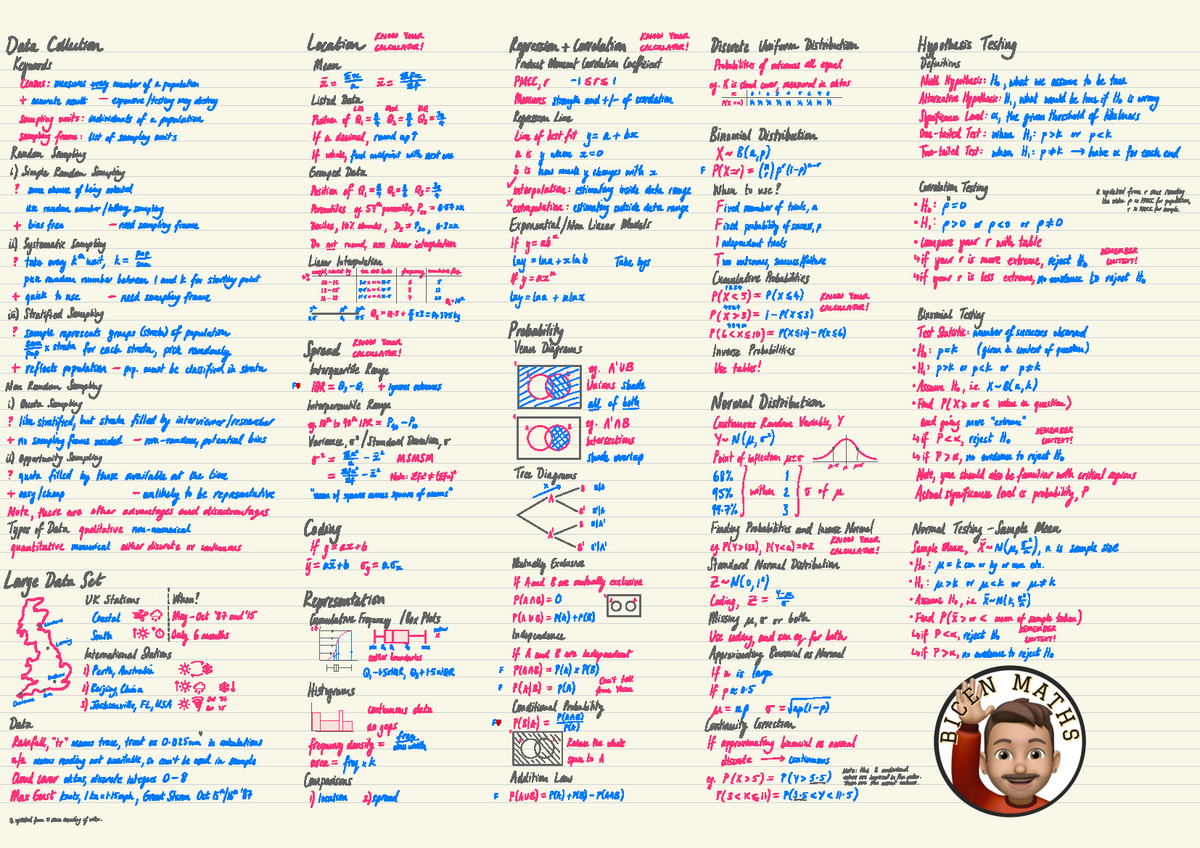 Data Collection
Keywords
Census: measures every member of a population
+ accurate result — expensive/testing may destroy
sampling units: individuals of a population
sampling frame: list of sampling units
Random Sampling
i) Simple Random Sampling
? same chance of being selected
use random number/lottery sampling
+ bias free — need sampling frame
ii) Systematic Sampling
? take every kth unit, k = pop/sam
pick random number between 1 and k for starting point
+ quick to use — need sampling frame
iii) Stratified Sampling
? sample represents groups (strata) of population
sam/pop × strata for each strata, pick randomly
+ reflects population — pop. must be classified in strata
Non Random Sampling
i) Quota Sampling
? like stratified, but strata filled by interviewer/researcher
+ no sampling frame needed — non-random, potential bias
ii) Opportunity Sampling
? quota filled by those available at the time
+ easy/cheap — unlikely to be representative
Note, there are other advantages and disadvantages
Types of Data qualitative non-numerical
quantitative numerical either discrete or continuous
Large Data Set
UK Stations When?
Coastal May - Oct '87 and '15
South Only 6 months
International Stations
1) Perth, Australia
2) Beijing, China
3) Jacksonville, FL, USA
Data
Rainfall, "tr" means trace, treat as 0-0.025mm in calculations
n/a means reading not available, so can't be used in sample
Cloud cover oktas, discrete integers 0-8
Max Gust knots, 1kn = 1.15mph, Great Storm Oct 15th/16th '87
Location KNOW YOUR CALCULATOR!
Mean
x̄ = Σx/n x̄ = Σfx/Σf
Listed Data
LQ Med UQ
Position of Q₁ = n/4 Q₂ = n/2 Q₃ = 3n/4
If a decimal, round up ↑
If whole, find midpoint with next one
Grouped Data
Position of Q₁ = n/4 Q₂ = n/2 Q₃ = 3n/4
Percentiles eg 57th percentile, P₅₇ = 0.57×n
Deciles, 10% chunks, D₂ = P₂₀, 0.2×n
Do not round, use linear interpolation
Linear Interpolation
frequency
Spread KNOW YOUR CALCULATOR!
Interquartile Range
IQR = Q₃ - Q₁ + ignores extremes
Interpercentile Range
eg 10th to 90th IPR = P₉₀ - P₁₀
Variance, σ² / Standard Deviation, σ
σ² = Σx²/n - x̄² MSMSM
= Σfx²/Σf - x̄² Note: Σfx² ≠ (Σfx)²
"mean of squares minus square of means"
Coding
If y = ax + b
ȳ = ax̄ + b σy = aσx
Representation
Cumulative Frequency / Box Plots
outlier boundaries
Q₁ - 1.5×IQR, Q₃ + 1.5×IQR
Histograms
continuous data
no gaps
frequency density = freq/class width
area = freq × k
Comparisons
1) location 2) spread
Regression + Correlation KNOW YOUR CALCULATOR!
Product Moment Correlation Coefficient
PMCC, r -1 ≤ r ≤ 1
Measures strength and +/- of correlation
Regression Line
Line of best fit y = a + bx
a is y when x = 0
b is how much y changes with x
✓ interpolation: estimating inside data range
x extrapolation: estimating outside data range
Exponential/Non Linear Models
If y = abˣ
lny = lna + xlnb Take logs
If y = axⁿ
lny = lna + nlnx
Probability
Venn Diagrams
eg. A'UB
Unions shade
all of both
eg. A'∩B
Intersections
shade overlap
Tree Diagrams
A
A'
B
B'
B
B'
B/A
B'/A
B/A'
B'/A'
Mutually Exclusive
If A and B are mutually exclusive
P(A∩B) = 0
P(AUB) = P(A) + P(B)
Independence
If A and B are independent
F P(A∩B) = P(A) × P(B)
F P(A|B) = P(A) Can't tell from Venn
Conditional Probability
P(B|A) = P(A∩B)/P(A)
Reduce the whole
span to A
Addition Law
F P(AUB) = P(A) + P(B) - P(A∩B)
Discrete Uniform Distribution
Probabilities of outcomes all equal
eg. K is cloud cover, measured in oktas
Binomial Distribution
X ~ B(n,p)
F P(X=r) = (n r) pʳ(1-p)ⁿ⁻ʳ
When to use?
Fixed number of trials, n
Fixed probability of success, p
Independent trials
Two outcomes, success/failure
Cumulative Probabilities
P(X<5) = P(X≤4) KNOW YOUR CALCULATOR!
P(X>3) = 1 - P(X≤3)
P(6<X≤10) = P(X≤10) - P(X≤6)
Inverse Probabilities
Use tables!
Normal Distribution
Continuous Random Variable, Y
Y ~ N(μ, σ²)
Point of inflection μ ± σ
68% 1
95% within 2 σ of μ
99.7% 3
Finding Probabilities and Inverse Normal
eg P(Y>133), P(Y<a) = 0.2 KNOW YOUR CALCULATOR!
Standard Normal Distribution
Z ~ N(0,1²)
Coding, Z = Y-μ/σ
Missing μ, σ or both
Use coding, and sim eq. for both
Approximating Binomial as Normal
If n is large
If p ≈ 0.5
μ = np σ = √np(1-p)
Continuity Correction
If approximating binomial as normal
discrete → continuous
eg. P(X>5) ≈ P(Y>5.5)
P(3<X≤11) ≈ P(3.5<Y<11.5)
Hypothesis Testing
Definitions
Null Hypothesis: H₀, what we assume to be true
Alternative Hypothesis: H₁, what would be true if H₀ is wrong
Significance Level: α, the given threshold of likeliness
One-tailed Test: when H₁: p>k or p<k
Two-tailed Test: when H₁: p≠k → halve α for each end
Correlation Testing
• H₀: ρ = 0
• H₁: ρ>0 or ρ<0 or ρ≠0
• compare your r with table
↳ if your r is more extreme, reject H₀ REMEMBER CONTEXT!
↳ if your r is less extreme, no evidence to reject H₀
Binomial Testing
Test Statistic: number of successes observed
• H₀: p = k (given in context of question)
• H₁: p>k or p<k or p≠k
• Assume H₀, i.e. X~B(n,k)
• Find P(X ≥ or ≤ value in question)
and going more "extreme"
↳ if P<α, reject H₀ REMEMBER CONTEXT!
↳ if P>α, no evidence to reject H₀
Note, you should also be familiar with critical regions
Actual significance level is probability, P
Normal Testing - Sample Mean
Sample Mean, X̄ ~ N(μ, σ²/n), n is sample size
• H₀: μ = k cm or kg or mm etc.
• H₁: μ>k or μ<k or μ≠k
• Assume H₀, i.e. X̄~N(k, σ²/n)
• Find P(X̄ > or < mean of sample taken)
↳ if P<α, reject H₀ REMEMBER CONTEXT!
↳ if P>α, no evidence to reject H₀
BICEN MATHS